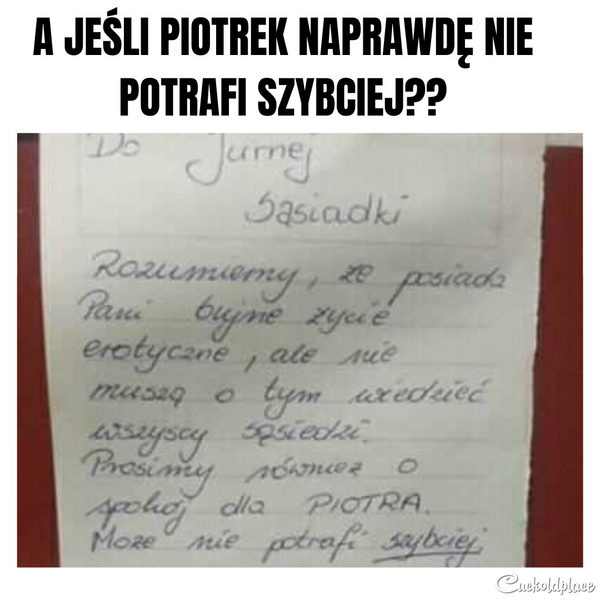 A JEŚLI PIOTREK NAPRAWDĘ NIE
POTRAFI SZYBCIEJ??
Do Jurnej
Sąsiadki
Rozumiemy, że posiada
Pani bujne życie
erotyczne, ale nie
muszą o tym wiedzieć
wszyscy sąsiedzi.
Prosimy również o
spokój dla PIOTRA.
Może nie potrafi szybciej
Cuckoldplace